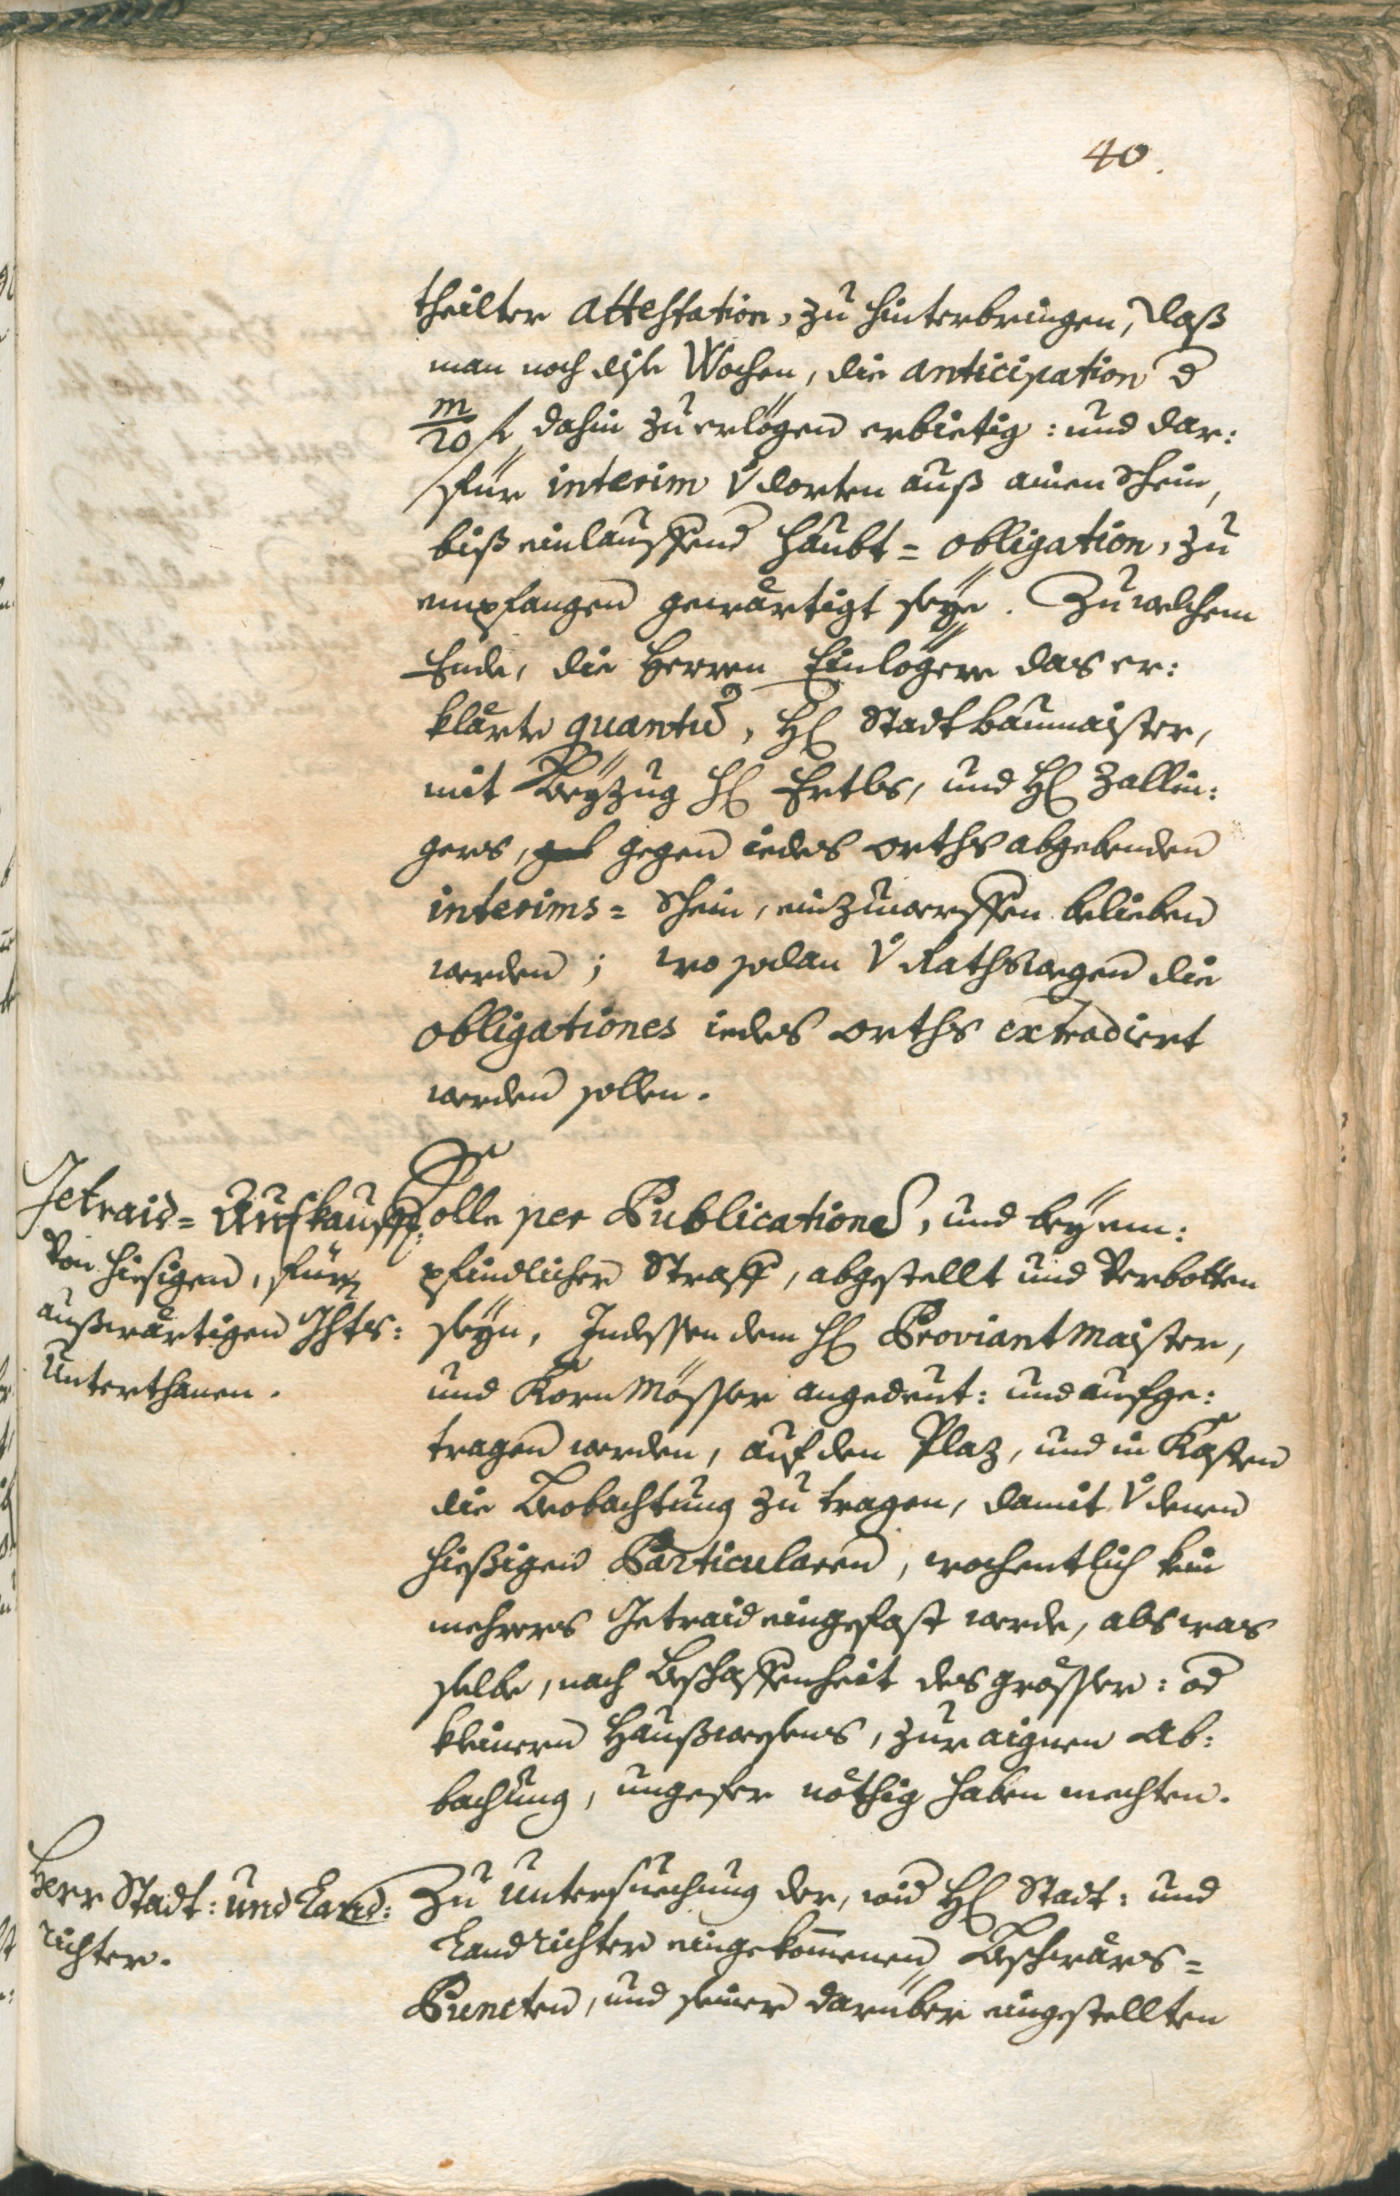 40.
theilter attestation, zu hinterbringen, daß
man noch dise Wochen, die anticipation d
m/20 f dahin zu erlögen erbietig: und dar:
für interim v dorten auß ainen Schein,
biß einlauffend Haubt= obligation, zu
empfangen gewärtigt seye. Zu welchem
Ende, die Herren Einlögere das er:
klärte quantu, H Stadtbaumaister,
mit Beyzug H Ertls, und H Zallin:
gers, gegen iedes orths abgebenden
interims= Schein, einzuwerffen belieben
werden; wo sodan v Rathswegen die
obligationes iedes orths extradiert
werden sollen.
Getraid= Aufkauff
Von hiesigen, für
außwärtigen Ghts:
Unterthanen.
Solle per Publicationes, und bey em:
pfindlicher Straff, abgestellt und Verbotten
seyn, Indessen dem H Proviantmaister,
und Korn Mösser angedeut: und aufge:
tragen werden, auf den Plaz, und in Kasten
die Beobachtung zu tragen, damit v denen
hießigen Particularen, wochentlich kein
mehrers Getraid eingefast werde, als was
selbe, nach Beschaffenheit des grösser: od
kleinern Haußwesens, zur aignen Ab:
bachung, ungefer nöthig haben mechten.
Herr Stadt: und Land:
richter.
Zu untersuechung der, wid H Stadt: und
Landrichter eingekomenen Beschwärs=
Puncten, und seiner darüber eingestellten